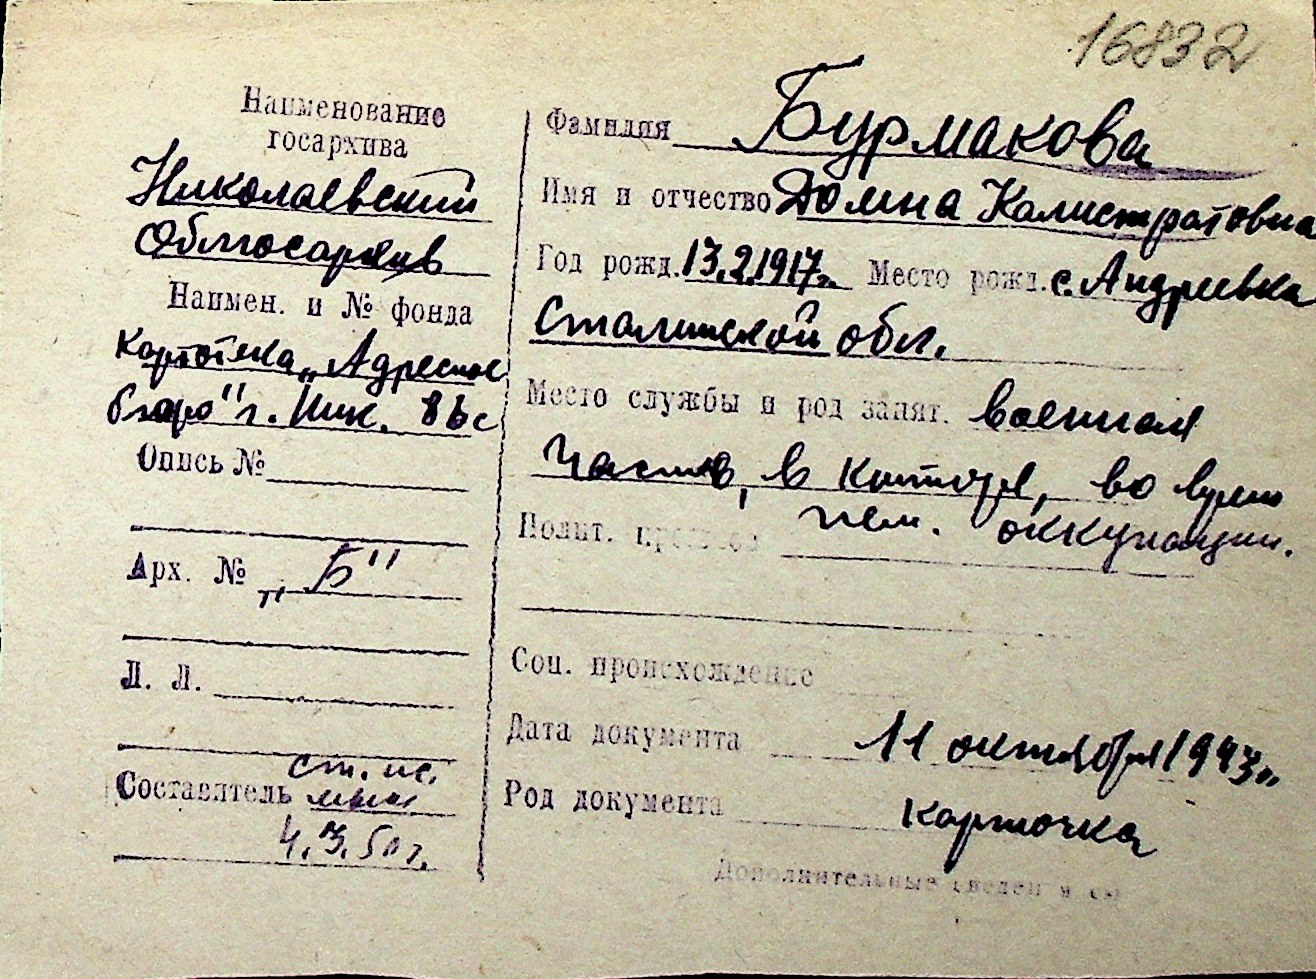 16832
Наименование
госархива
Николаевский
Облгосархив
Наимен. и № фонда
Картотека „Адресное
бюро" г. Ник. 86с
Опись №
Арх. № „Б"
Л. Л.
Составитель ст. ис.
4.3.50 г.
Фамилия Бурмакова
Имя и отчество Домна Калистратовна
Год рожд. 13.2.1917г. Место рожд. с. Андреевка
Сталинской обл.
Место службы и род занят. военная
часть, в конторе, во время
нем. оккупации.
Полит.
Соц. происхождение
Дата документа 11 октября 1943г.
Род документа карточка
Дополнительные сведения